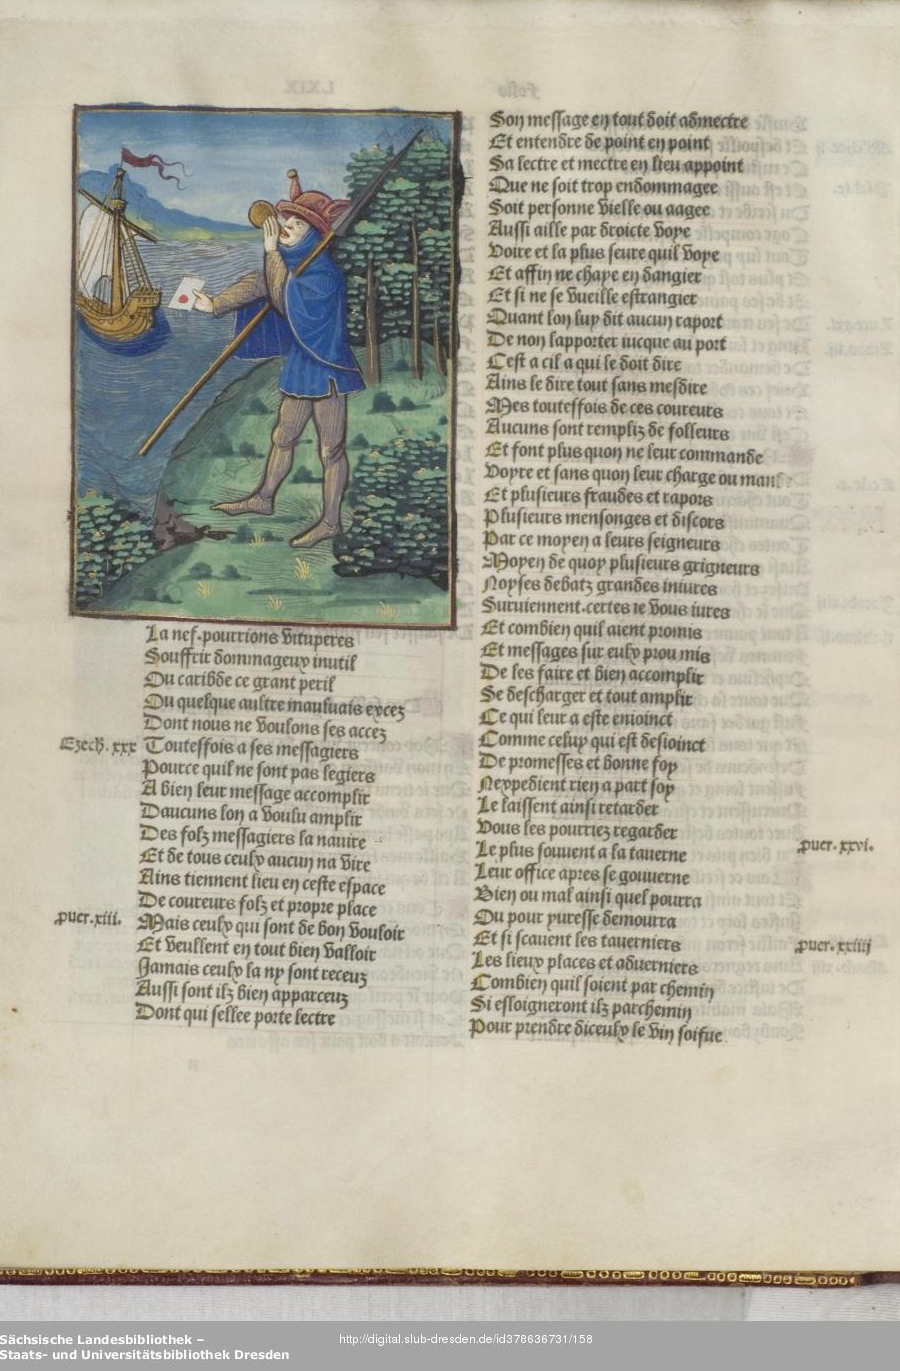 La nef.pourrions vituperes
Souffrir dommageux inutil
Ou caribde ce grant peril
Ou quelque aultre mauluais excez
Dont nous ne voulons ses accez
Ezech. xxx
Touteffois a ses messagiers
Pource quil ne sont pas legiers
A bien leur message accomplir
Daucuns lon a voulu amplir
Des folz messagiers la nauire
Et de tous ceulx aucun na vire
Ains tiennent lieu en ceste espace
De coureurs folz et propre place
puer.xiii.
Mais ceulx qui sont de bon vouloir
Et veullent en tout bien valloir
Jamais ceulx la ny sont receuz
Aussi sont ilz bien apparceuz
Dont qui sellee porte lectre
Son message en tout doit admectre
Et entendre de point en point
Sa lectre et mectre en lieu appoint
Que ne soit trop endommagee
Soit personne vielle ou aagee
Aussi aille par droicte voye
Voire et la plus seure quil voye
Et affin ne chaye en dangier
Et si ne se vueille estrangier
Quant lon luy dit aucun raport
De non lapporter iucque au port
Cest a cil a qui le doit dire
Ains le dire tout sans mesdire
Mes touteffois de ces coureurs
Aucuns sont rempliz de folleurs
Et font plus quon ne leur commande
Voyre et sans quon leur charge ou
Et plusieurs fraudes et rapors
Plusieurs mensonges et discors
Par ce moyen a leurs seigneurs
Moyen de quoy plusieurs grigneurs
Noyses debatz grandes iniures
Suruiennent.certes ie vous iures
Et combien quil aient promis
Et messages sur eulx prou mis
De les faire et bien accomplir
Se descharger et tout amplir
Ce qui leur a este enioinct
Comme celuy qui est desioinct
De promesses et bonne foy
Nexpedient rien a part soy
Le laissent ainsi retarder
Vous les pourriez regarder
Le plus souuent a la tauerne
puer. xxvi.
Leur office apres se gouuerne
Bien ou mal ainsi quel pourra
Ou pour yuresse demourra
Et si scauent les tauerniers
puer. xxiiij
Les lieux places et aduerniers
Combien quil soient par chemin
Si essoigneront ilz parchemin
Pour prendre diceulx le vin soifue
Sächsische Landesbibliothek –
Staats- und Universitätsbibliothek Dresden
http://digital.slub-dresden.de/id378636731/158